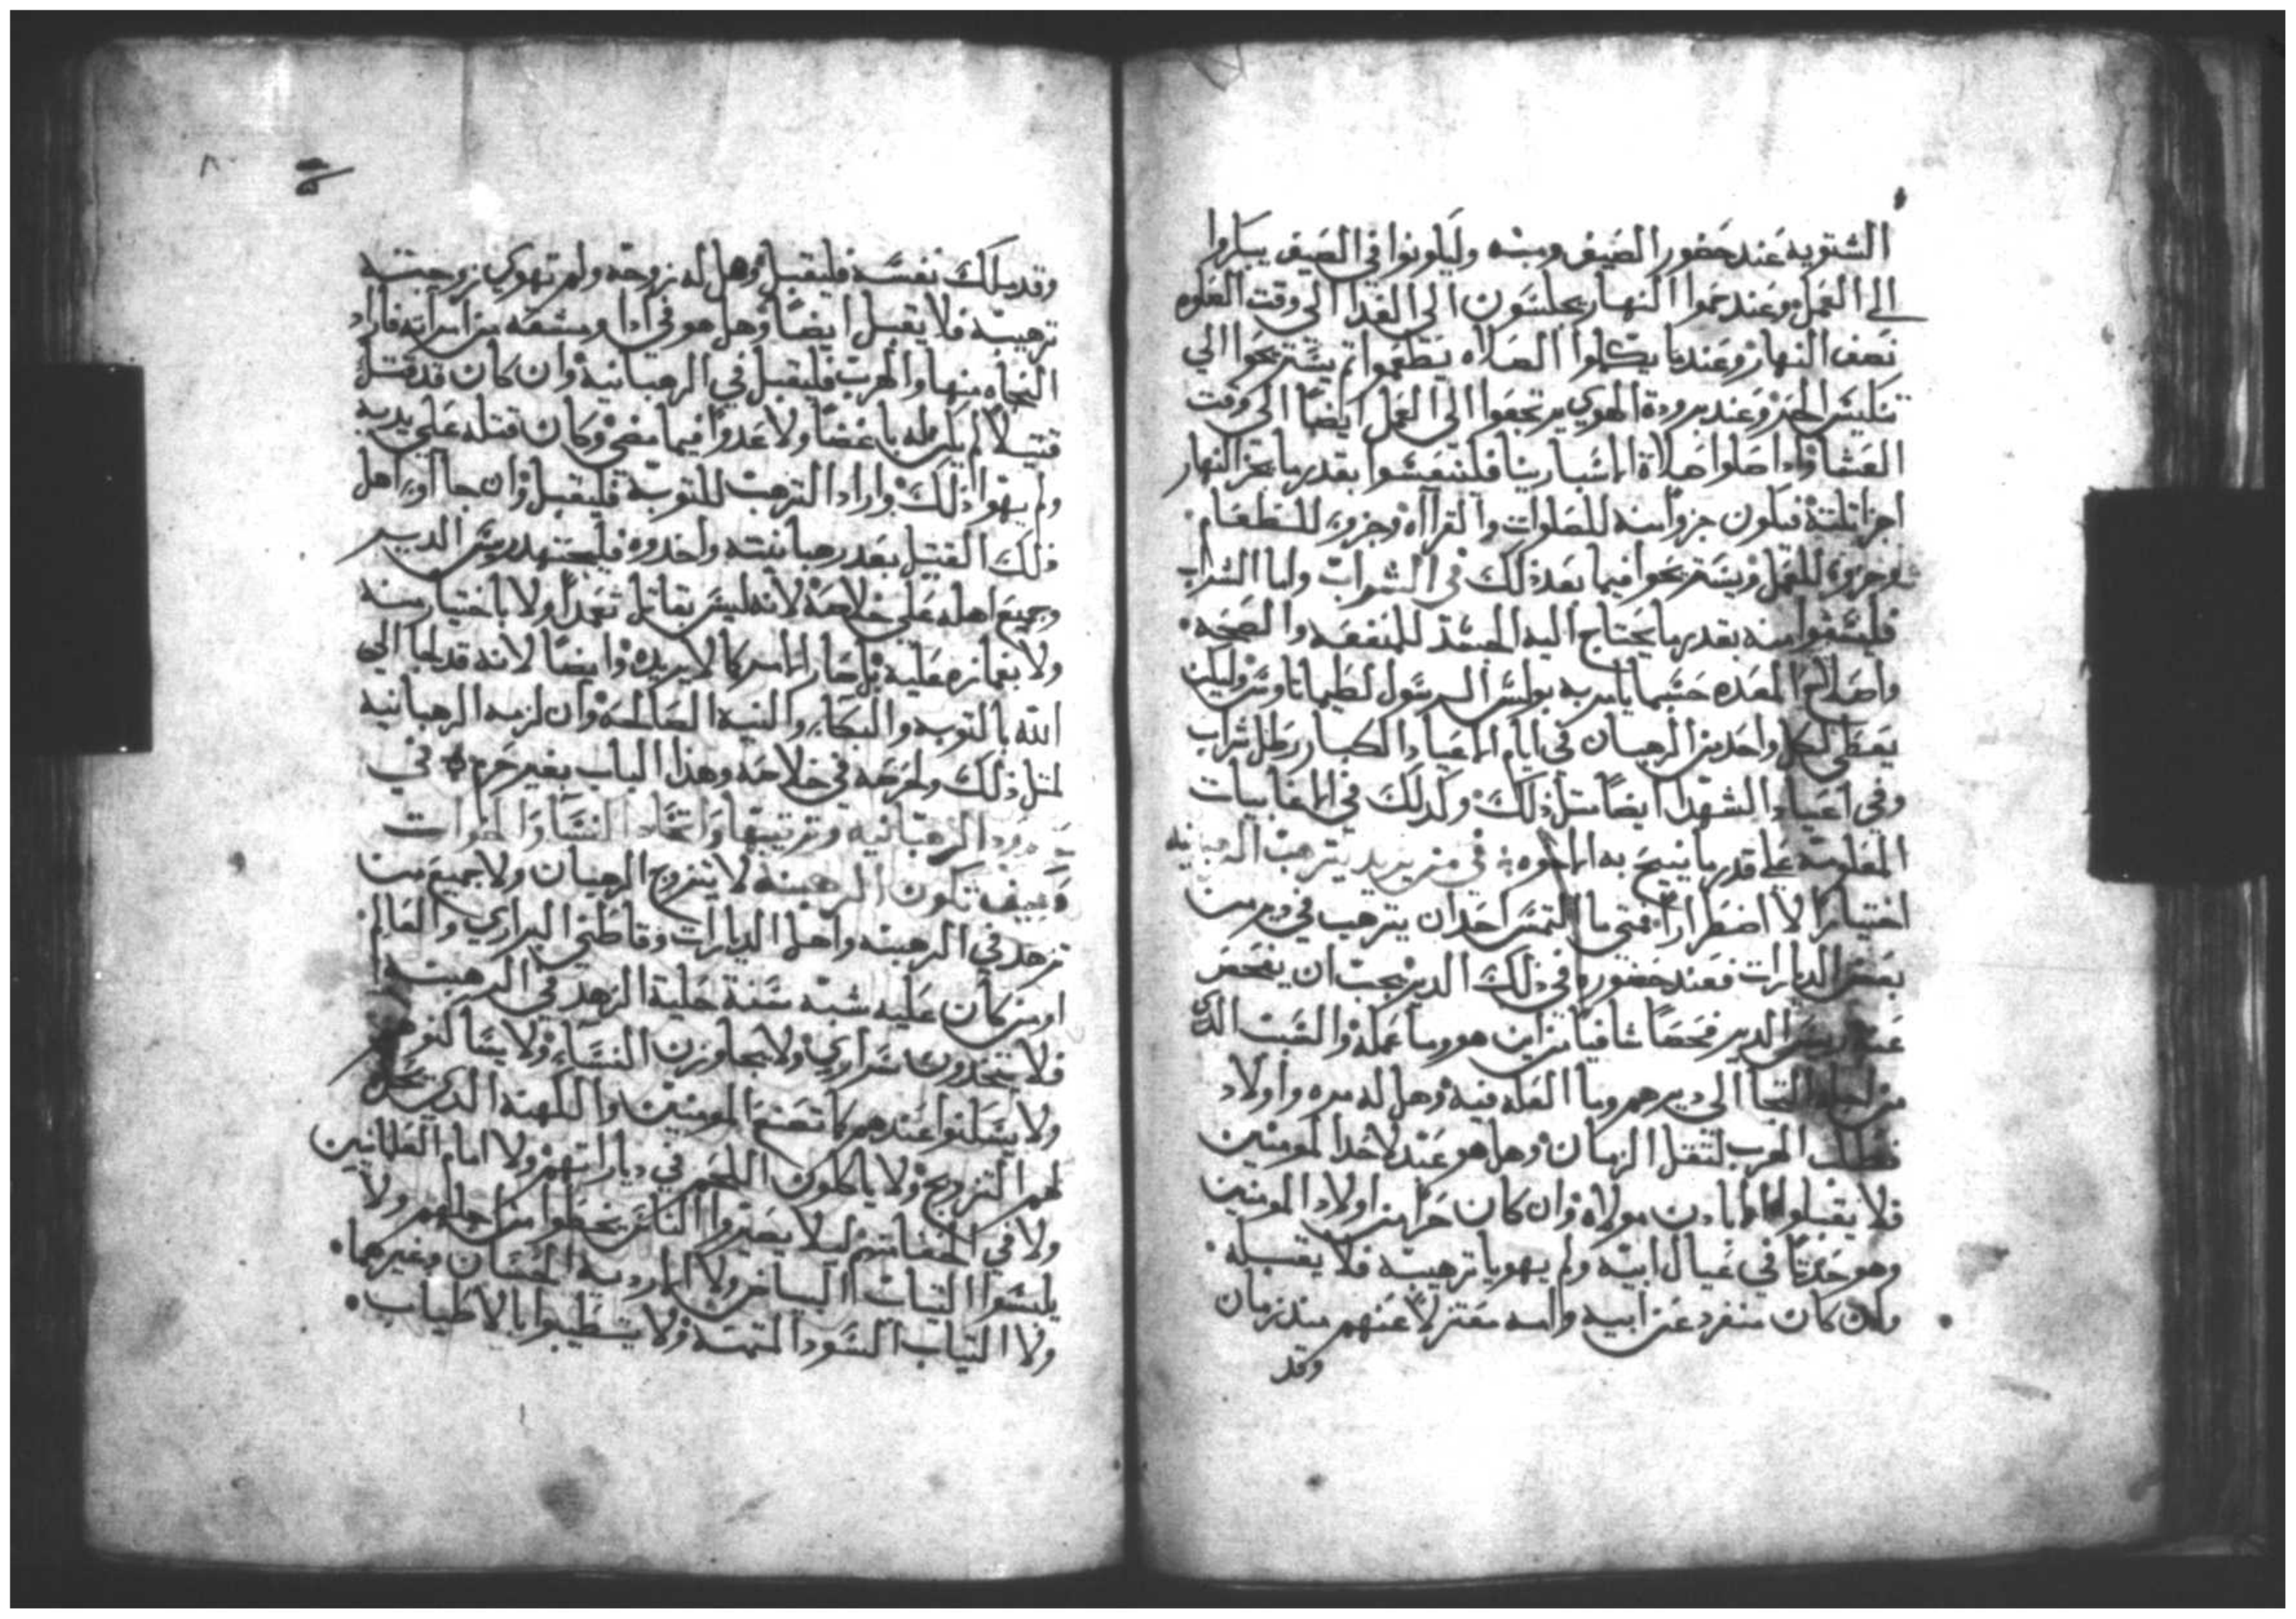 الشتويه عند حضور الصيف ومنه وليلونوا في الصيف يبكروا
الى العمل وعند حموا النهار يجلسون الى الغدا الى وقت الصلوه
نصف النهار وعندما يكملوا الصلاه يتطعموا ثم يستريحوا الي
تنكيس الحر وعند برودة الهوي يرتجعوا الي العمل ايضا الى وقت
العشا واذا صلوا صلاة الاسبارينا فلتنعشوا بقدر ما يجز النهار
اجزا ثلثة فيكون جزوا منه للصلوات والقراآه وجزوء للطعام
وجزوء للعمل ويستريحوا فيما بعد ذلك في الشراب واما الشراب
فليسقوا منه بقدر ما يحتاج اليه الجسد للمنفعه والصحه
واصلاح المعده حسبما يامر به بولس الرسول لطيماتاوس وليكن
يعطى لكل واحد من الرهبان في ايام الاعياد الكبار رطل شراب
وفي اعياد الشهدا ايضا مثل ذلك وكدلك في الاغابيات
المعلومة على قدر ما ينيح به الاخوه في من يريد يترهب الرهبنيه
اختيارا لا اضطرارا متي ما التمس احد ان يترهب في دير من
بعض الديارات فعند حضوره في ذلك الدير يجب ان يفحص
عنه رييس الدير فحصا شافيا من اين هو وما عمله والسبب الذي
من اجله التجا الي ديرهم وما العله فيه وهل له مره واولاد
فطلب الهرب لتقل الزمان وهل هو عبد لاحد المومنين
فلا يقبلوه الا بادن مولاه وان كان حرا من اولاد المومنين
وهو حدثا في عيال ابيه ولم يهويا ترهيبه فلا يقبله
وان كان منفرد عن ابيه وامه معتزلا عنهم مند زمان
وقد
٨٠
وقد يملك نفسه فليقبل وهل له زوجه ولم تهوي زوجته
ترهيبه فلا يقبل ايضا وهل هو في ادا ومشقه من امراته فاراد
النجاه منها والهرب فليقبل في الرهبانيه وان كان قد قتل
قتيلا لم يكن له باغضا ولا عدوا فيما مضي وكان قتله على يديه
ولم يهوا ذلك واراد الترهب للتوبة فليقبل وان جا اوي اهل
ذلك القتيل بعد رهبانته واخدوه فليجتهد رييس الدير
وجميع اهله على خلاصه لانه ليس بقاتل تعمدا ولا باختيار منه
ولا بغمازه عليه بل صار الامر كما لا يريده وايضا لانه قد لجا الي
الله بالتوبه والبكاء والنيه الصالحه وان لزمه الرهبانيه
لمثل ذلك ولحرصه في خلاصه وهذا الباب بغير حرم في
حدود الرهبانيه وترتيبها واتخاد النسا والاخوات
وكيف تكون الرهبنه لا يتزوج الرهبان ولا جميع من
تزهد في الرهبنه واهل الديارات وقاطني البراري والعالم
او من كان عليه شبه سنة حلية الزهد في الرهبنه
فلا يتخدون سراري ولا يجاوزن النساء ولا يساكنوهم
ولا يسكنوا عندهم كما تصنع المومنين والكهنه الذي يحل
لهم التزويج ولا ياكلون اللحم في دياراتهم ولا امام العلمانيين
ولا في اجتماعتهم ليلا يصيروا الناس يخطوا من اجلهم ولا
يلبسوا التياب البياض ولا الارديه الحسان وغيرها
ولا التياب السود التمنه ولا يتطيبوا بالاطياب